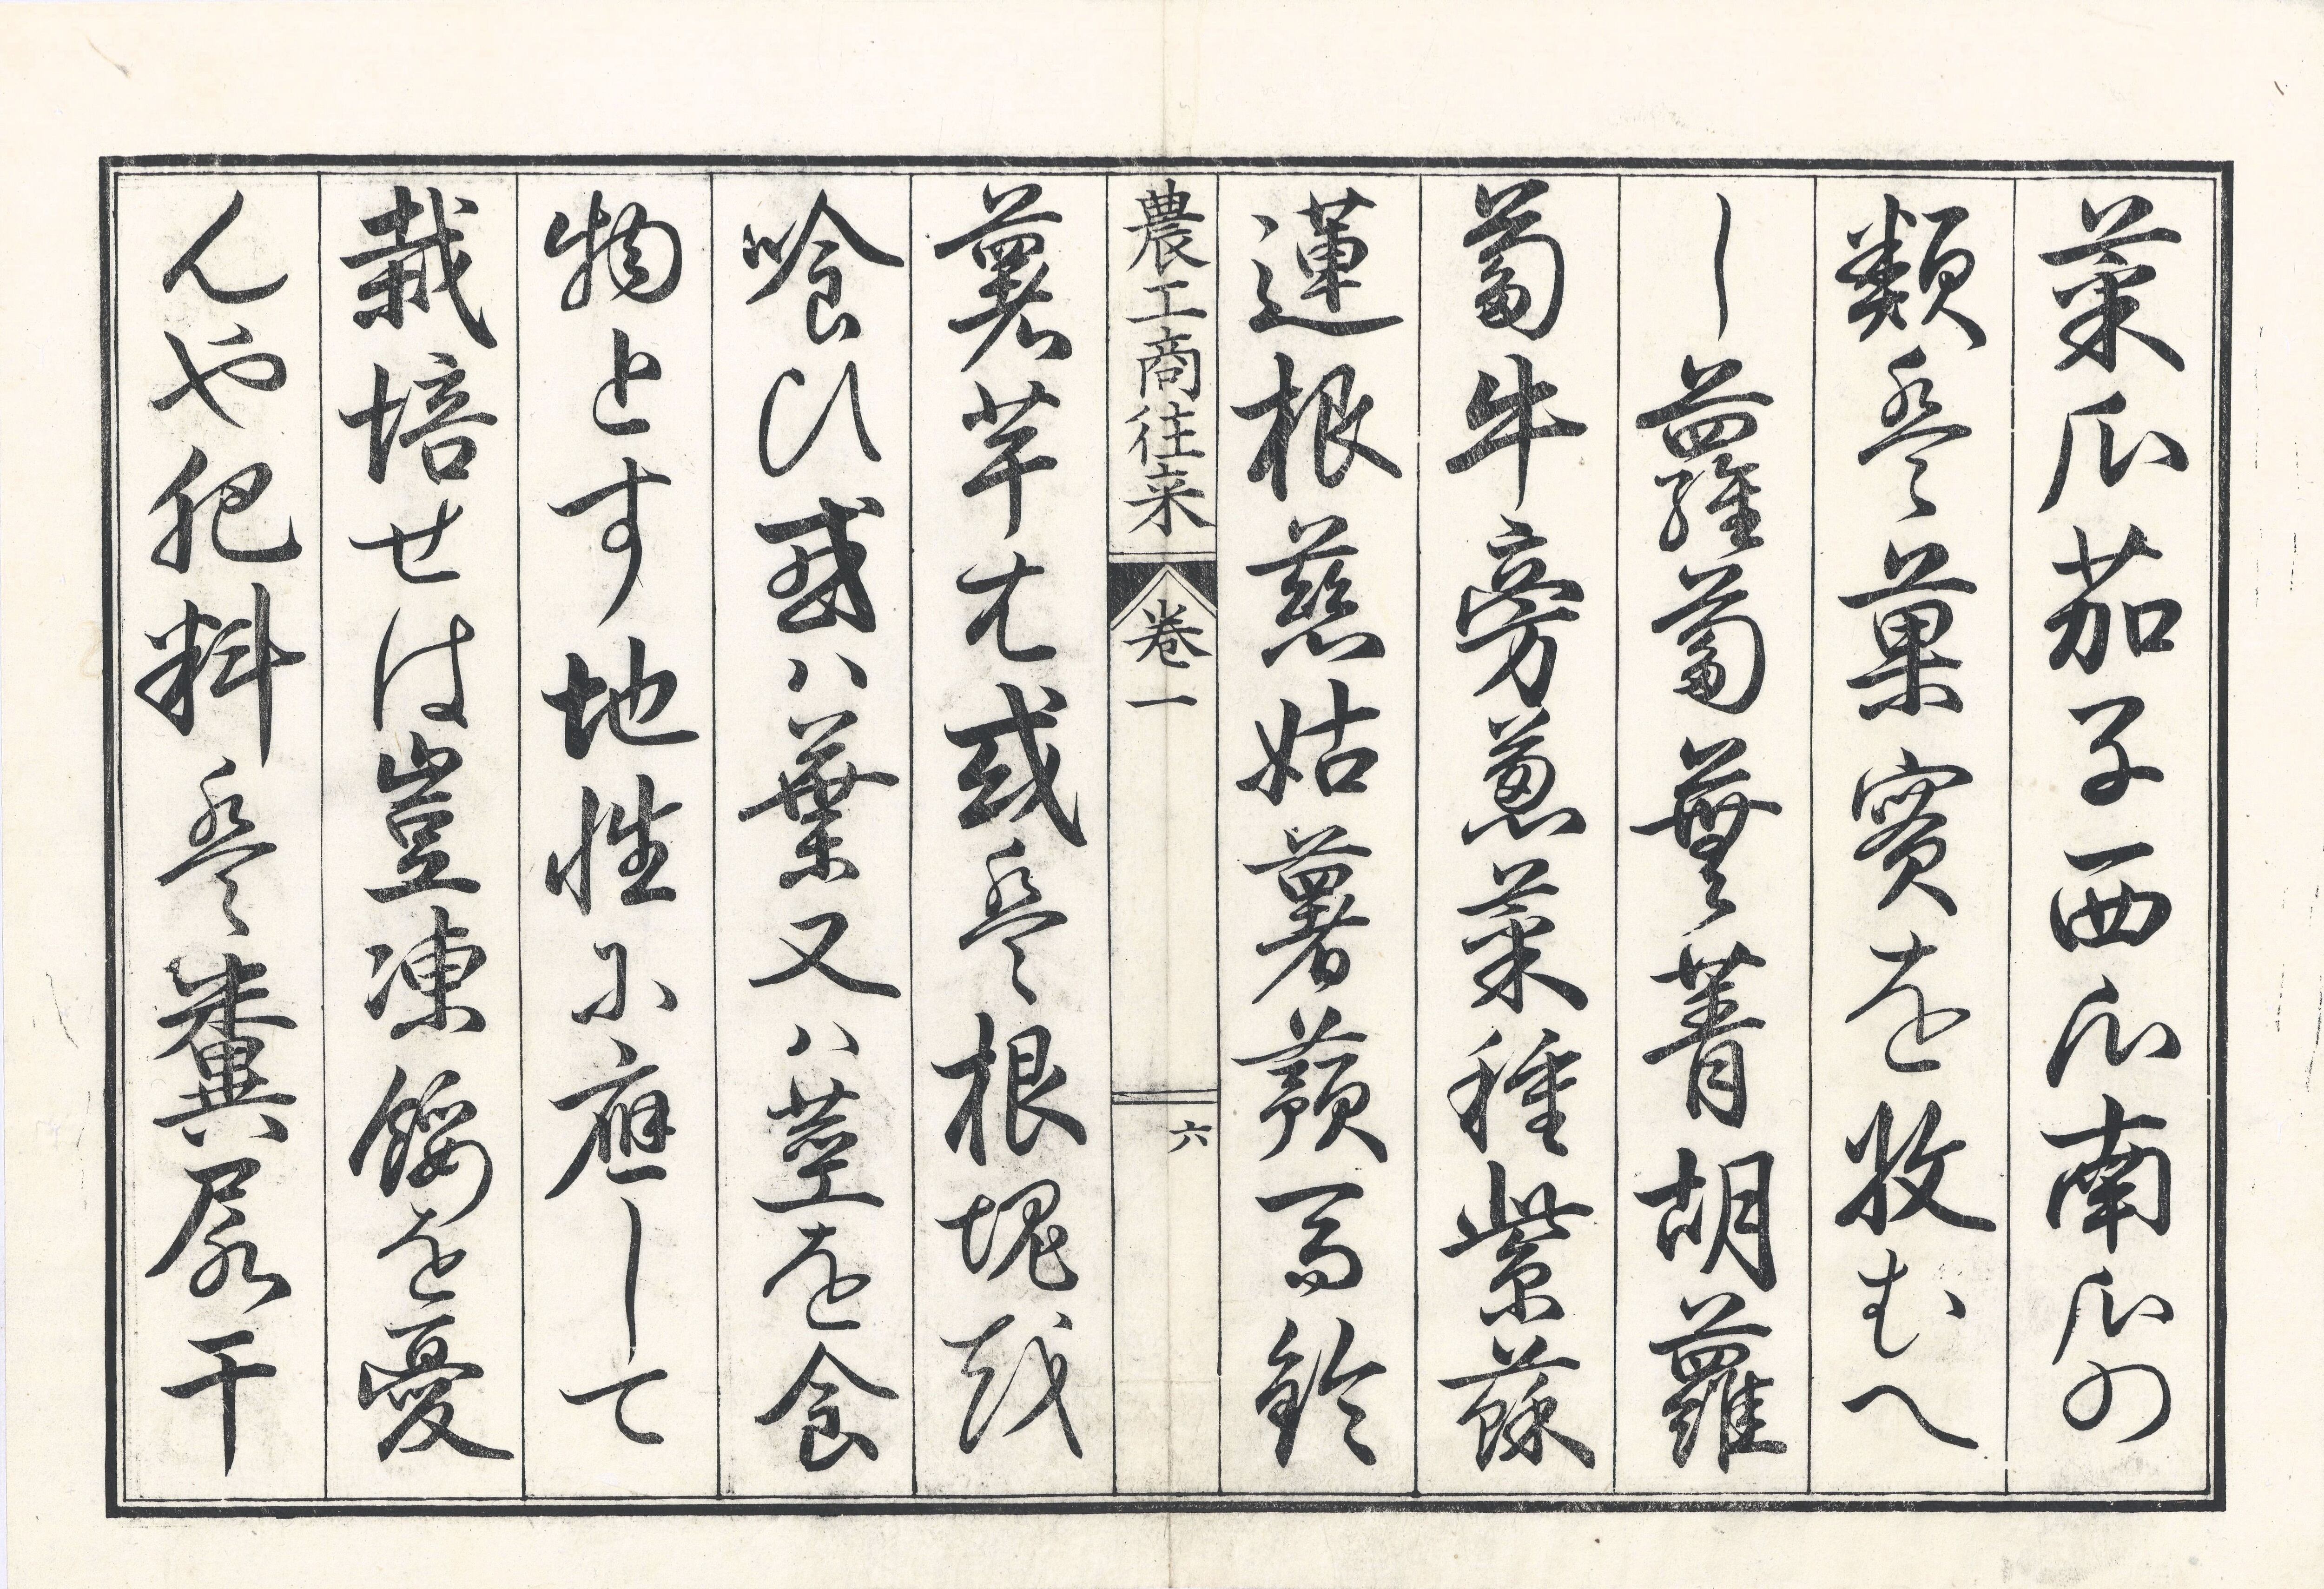 菜瓜茄子西瓜南瓜の
類は菓實を收むへ
し蘿蔔蕪菁胡蘿
蔔牛旁葱菜種紫蘇
蓮根慈姑薯蕷馬鈴
農工商往来 巻一 六
薯芋等或は根塊を
喰ひ或ハ葉又ハ莖を食
物とす地性に應して
栽培せは豈凍餒を憂
んや肥料は糞尿干